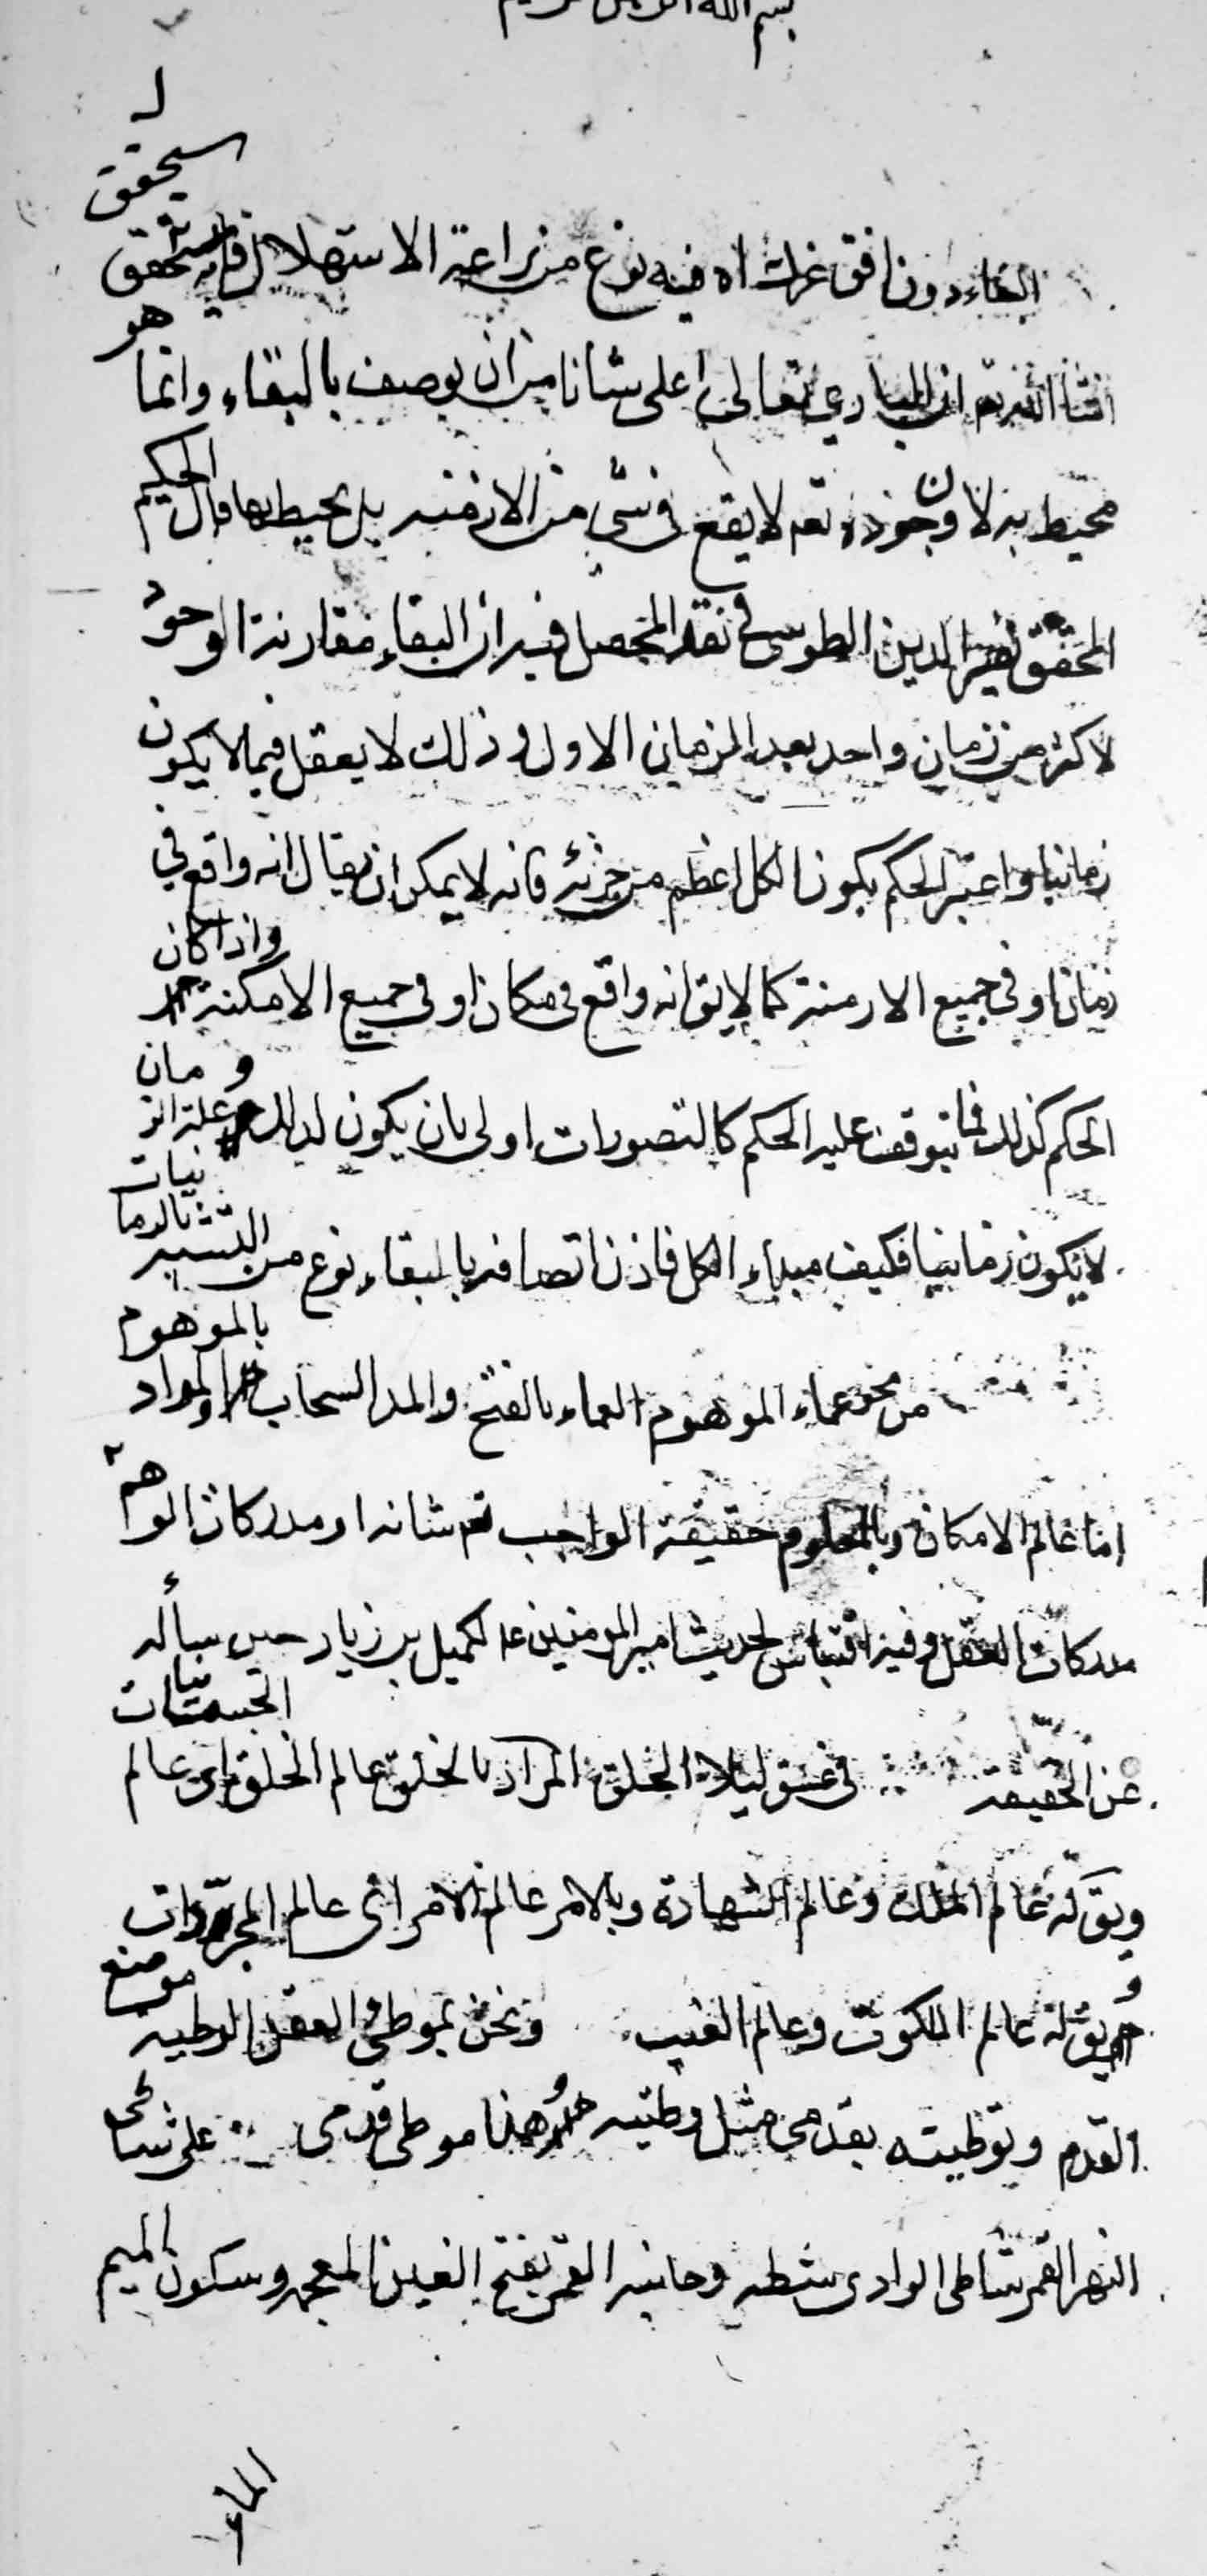 بسم الله الرحمن الرحيم
سيحقق
البقاء دون افق عزك اه فيه نوع من براعة الاستهلال فانه سيحقق
انشاء الله تعم ان الباري تعالى اعلى شانا من ان يوصف بالبقاء وانما هو
محيط به لان وجوده تعم لا يقع في شي من الازمنه بل يحيط بها قال الحكيم
المحقق نصير الدين الطوسي في نقد المحصل فيه ان البقاء مقارنة الوجود
لاكثر من زمان واحد بعد الزمان الاول وذلك لا يعقل فيما لا يكون
زمانيا واعتبر الحكم بكون الكل اعظم من جزئه فانه لا يمكن ان يقال انه واقع في
زمان او في جميع الازمنة كما لا يق انه واقع في مكان او في جميع الامكنة واذا كان
الحكم كذلك فما يتوقف عليه الحكم كالتصورات اولى بان يكون كذلك وعلة الزمان و
لا يكون زمانيا فكيف مبداء الكل فاذن اتصافه بالبقاء نوع من التشبيه بالزمانيات
من محو عماء الموهوم العماء بالفتح والمد السحاب والمراد بالموهوم
اما عالم الامكان وبالمعلوم حقيقة الواجب تعم شانه او مدركات الوهم
مدركات العقل وفيه اقتباس لحديث امير المومنين ع لكميل بن زياد حين سأله
عن الحقيقة في غسق ليلاء الخلق المراد بالخلق عالم الخلق اى عالم الجسمانيات
ويق له عالم الملك وعالم الشهادة وبالامر عالم الامر اى عالم المجردات
و يق له عالم الملكوت وعالم الغيب ونحن بموطئ العقل الوطيه موضع
القدم وتوطيته بقدمي مثل وطئيه وهذا موطى قدمى على شاطى
النهر الغمر شاطى الوادى شطه وجانبه الغمر بفتح الغين المعجمه وسكون الميم
الماء